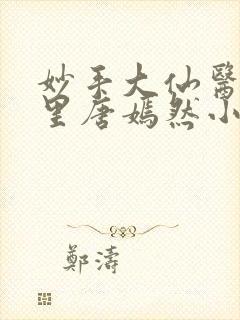 妙手大仙醫
里唐嫣然小
鄭濤